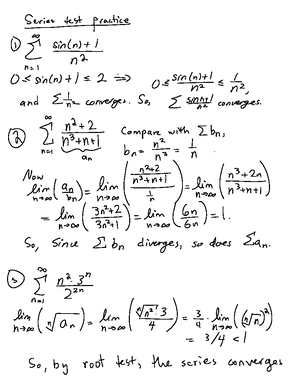 Series test practice
① ∞ ∑ n=1 (sin(n)+1)/n²
0 ≤ sin(n)+1 ≤ 2 ⟹ 0 ≤ (sin(n)+1)/n² ≤ 1/n²,
and ∑ 1/n² converges. So, ∑ (sin(n)+1)/n² converges.
② ∞ ∑ n=1 (n²+2)/(n³+n+1) Compare with ∑ bₙ,
aₙ bₙ = n²/n³ = 1/n.
Now
lim n→∞ (aₙ/bₙ) = lim n→∞ (((n²+2)/(n³+n+1))/(1/n)) = lim n→∞ ((n³+2n)/(n³+n+1))
= lim n→∞ ((3n²+2)/(3n²+1)) = lim n→∞ (6n/6n) = 1.
So, Since ∑ bₙ diverges, so does ∑ aₙ.
③ ∞ ∑ n=1 (n²·3ⁿ)/2²ⁿ
lim n→∞ (ⁿ√aₙ) = lim n→∞ ((ⁿ√n²·3)/4) = 3/4 · lim n→∞ ((ⁿ√n)²)
= 3/4 < 1
So, by root test, the series converges